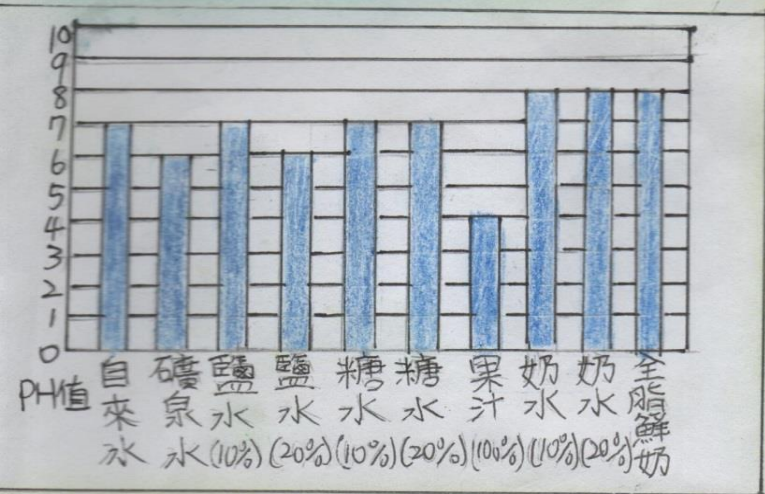 10
9
8
7
6
5
4
3
2
1
0
PH值
自來水
礦泉水
鹽水(10%)
鹽水(20%)
糖水(10%)
糖水(20%)
果汁(100%)
奶水(10%)
奶水(20%)
全脂鮮奶